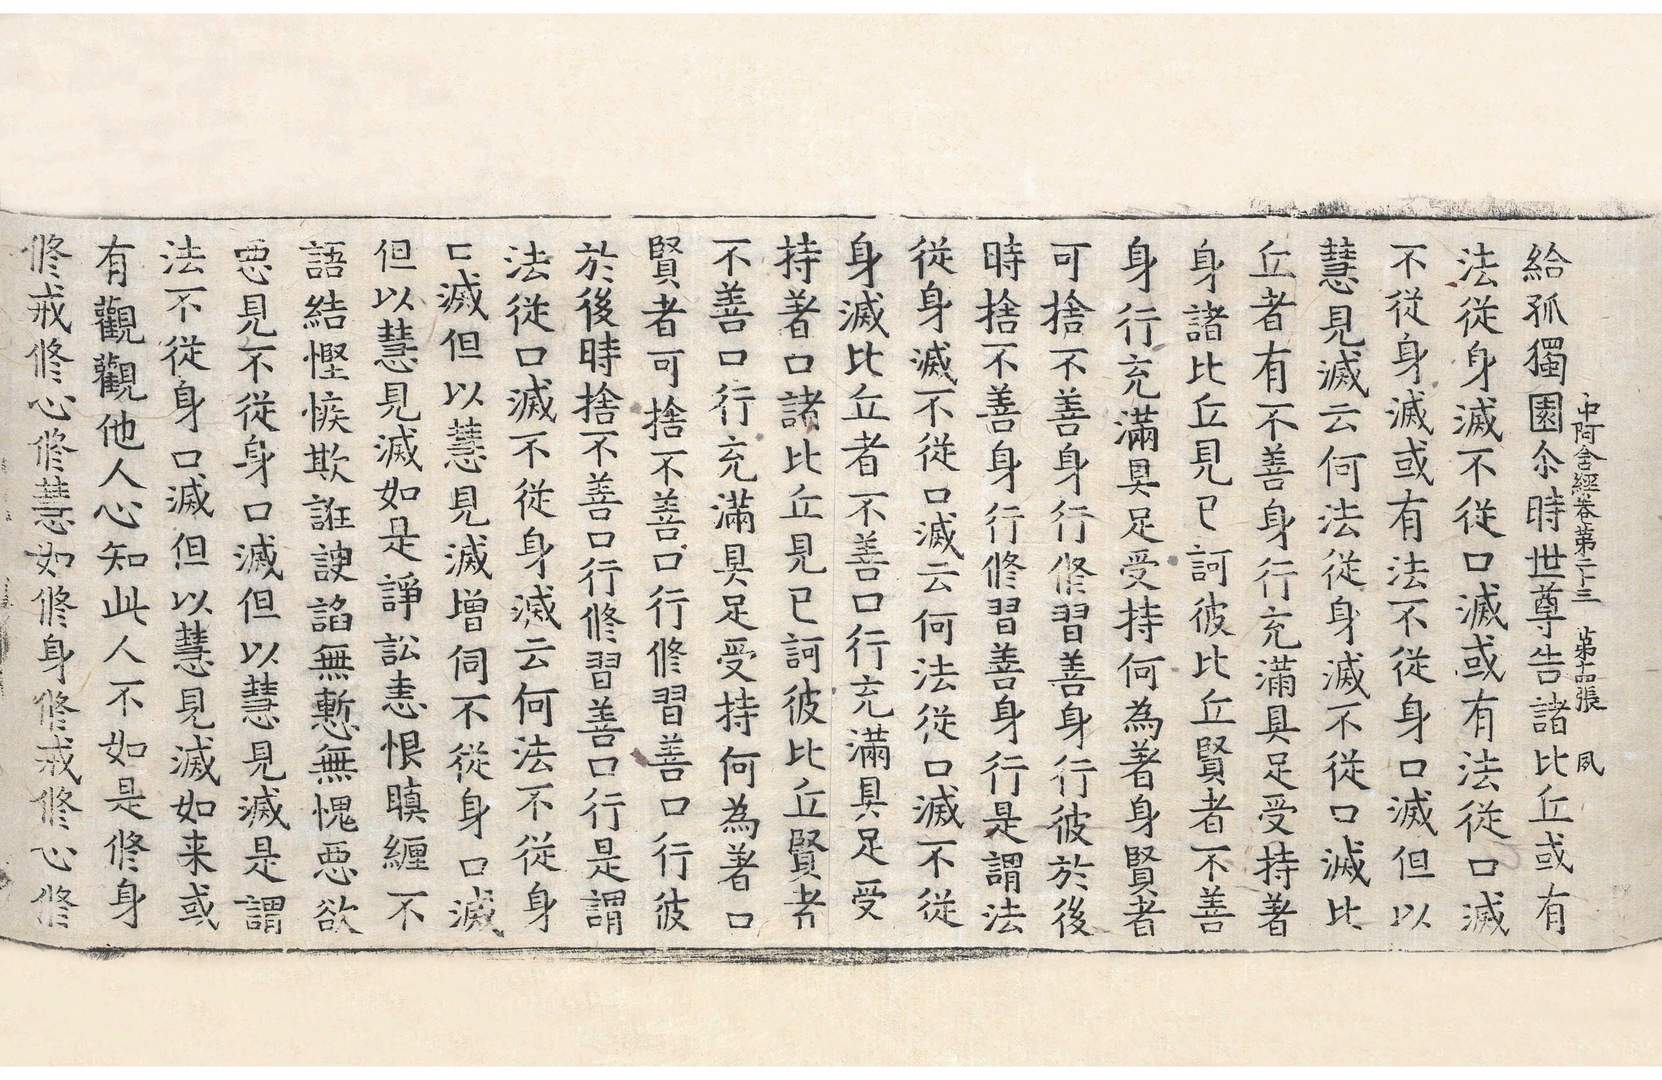 中阿含經卷第二十三 第十四張 夙
給孤獨園尒時世尊告諸比丘或有
法從身滅不從口滅或有法從口滅
不從身滅或有法不從身口滅但以
慧見滅云何法從身滅不從口滅比
丘者有不善身行充滿具足受持著
身諸比丘見已訶彼比丘賢者不善
身行充滿具足受持何為著身賢者
可捨不善身行修習善身行彼於後
時捨不善身行修習善身行是謂法
從身滅不從口滅云何法從口滅不從
身滅比丘者不善口行充滿具足受
持著口諸比丘見已訶彼比丘賢者
不善口行充滿具足受持何為著口
賢者可捨不善口行修習善口行彼
於後時捨不善口行修習善口行是謂
法從口滅不從身滅云何法不從身
口滅但以慧見滅增伺不從身口滅
但以慧見滅如是諍訟恚恨瞋纏不
語結慳嫉欺誑諛諂無慙無愧惡欲
惡見不從身口滅但以慧見滅是謂
法不從身口滅但以慧見滅如来或
有觀觀他人心知此人不如是修身
修戒修心修慧如修身修戒修心修